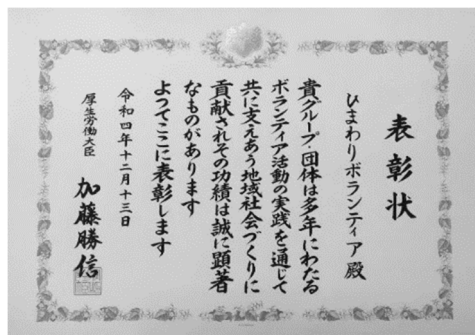 表彰状
ひまわりボランティア殿
貴グループ・団体は多年にわたる
ボランティア活動の実践を通じて
共に支えあう地域社会づくりに
貢献されその功績は誠に顕著
なものがあります
よつてここに表彰します
令和四年十二月十三日
厚生労働大臣
加藤勝信